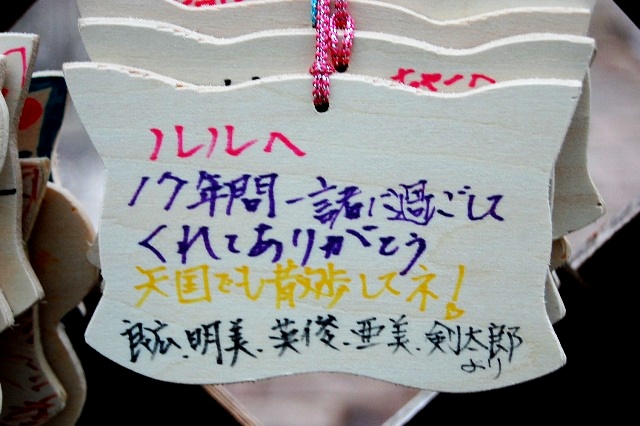 ルルへ
17年間一諸に過ごして
くれてありがとう
天国でも散歩してネ!
良広、明美、英俊、亜美、剣太郎
より